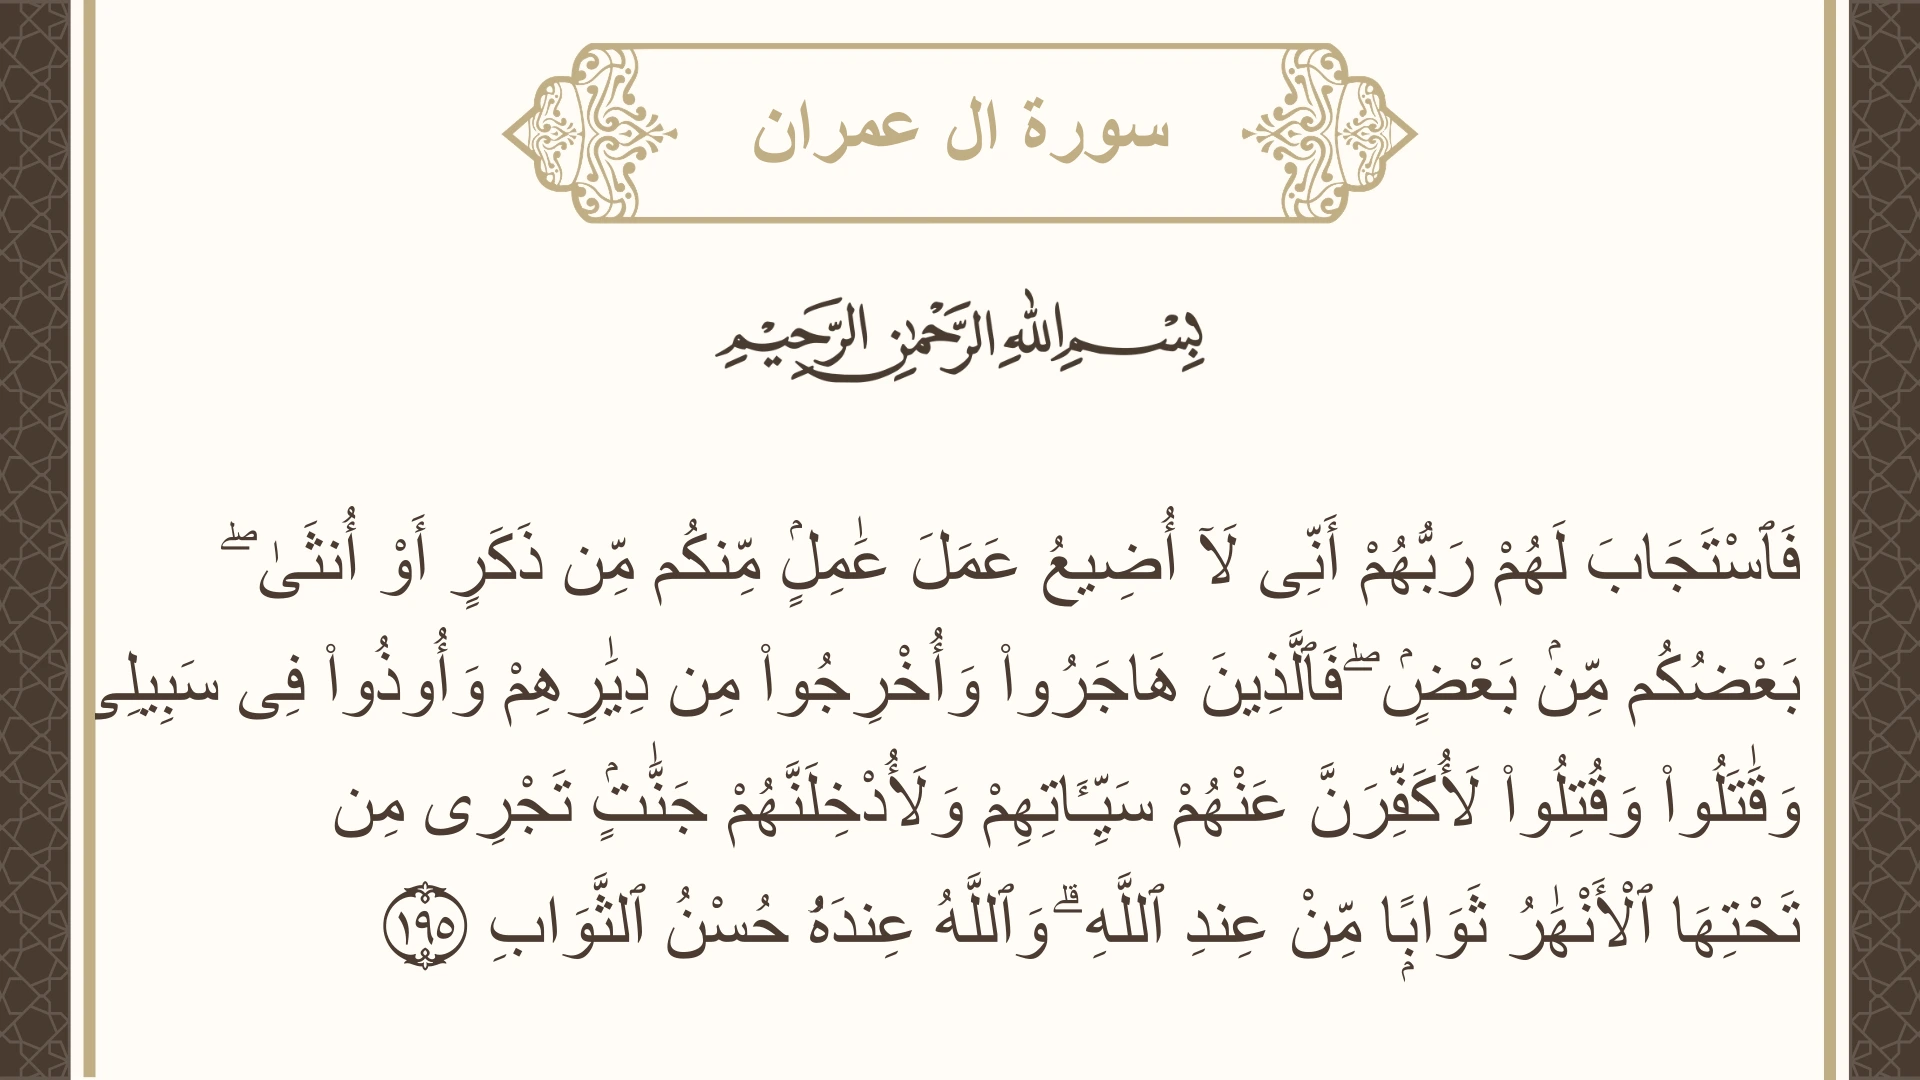 سورة ال عمران
بِسْمِ اللهِ الرَّحْمٰنِ الرَّحِيْمِ
فَٱسْتَجَابَ لَهُمْ رَبُّهُمْ أَنِّى لَآ أُضِيعُ عَمَلَ عَٰمِلٍۢ مِّنكُم مِّن ذَكَرٍ أَوْ أُنثَىٰ ۖ
بَعْضُكُم مِّنۢ بَعْضٍۢ ۖ فَٱلَّذِينَ هَاجَرُوا۟ وَأُخْرِجُوا۟ مِن دِيَٰرِهِمْ وَأُوذُوا۟ فِى سَبِيلِى
وَقَٰتَلُوا۟ وَقُتِلُوا۟ لَأُكَفِّرَنَّ عَنْهُمْ سَيِّـَٔاتِهِمْ وَلَأُدْخِلَنَّهُمْ جَنَّٰتٍۢ تَجْرِى مِن
تَحْتِهَا ٱلْأَنْهَٰرُ ثَوَابًۭا مِّنْ عِندِ ٱللَّهِ ۗ وَٱللَّهُ عِندَهُۥ حُسْنُ ٱلثَّوَابِ ١٩٥